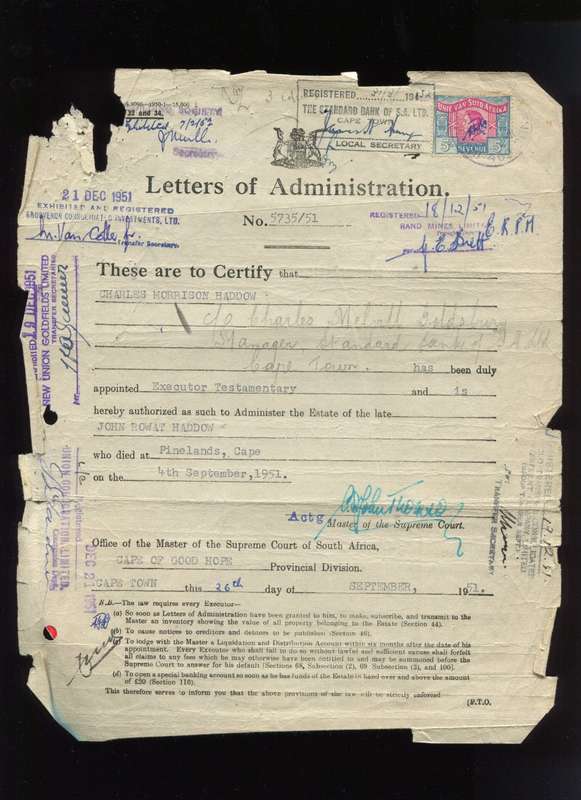 32 and 34.
Exhibited 7/2/52
Secretary
REGISTERED
THE STANDARD BANK OF S.A. LTD.
CAPE TOWN
LOCAL SECRETARY
UNIE VAN SUID AFRIKA
5/- REVENUE 5/-
Letters of Administration.
No. 5735/51
21 DEC 1951
EXHIBITED AND REGISTERED
Transfer Secretary
REGISTERED 18/12/51
RAND MINES LIMITED
These are to Certify that
CHARLES MORRISON HADDOW
c/o Charles
Manager Standard Bank of S.A. Ltd
Cape Town. has been duly
appointed Executor Testamentary and is
hereby authorized as such to Administer the Estate of the late
JOHN ROWAT HADDOW
who died at Pinelands, Cape
on the 4th September, 1951.
Actg Master of the Supreme Court.
Office of the Master of the Supreme Court of South Africa,
CAPE OF GOOD HOPE Provincial Division.
CAPE TOWN this 26th day of SEPTEMBER, 1951.
19 DEC 1951
NEW UNION GOLDFIELDS LIMITED
TRANSFER SECRETARIES
UNION CORPORATION LIMITED.
DEC 21 1951
TRANSFER SECRETARY
N.B.—The law requires every Executor—
(a) So soon as Letters of Administration have been granted to him, to make, subscribe, and transmit to the Master an inventory showing the value of all property belonging to the Estate (Section 44).
(b) To cause notices to creditors and debtors to be published (Section 46).
(c) To lodge with the Master a Liquidation and Distribution Account within six months after the date of his
appointment. Every Executor who shall fail to do so without lawful and sufficient excuse shall forfeit
all claims to any fees which he may otherwise have been entitled to and may be summoned before the
Supreme Court to answer for his default (Sections 68, Subsection (2), 69 Subsection (3), and 100).
(d) To open a special banking account so soon as he has funds of the Estate in hand over and above the amount
of £20 (Section 116).
This therefore serves to inform you that the above provisions of the law will be strictly enforced
(P.T.O.